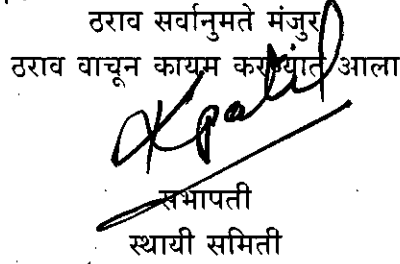 ठराव सर्वानुमते मंजुर
ठराव वाचून कायम करण्यात आला
Kpatil
सभापती
स्थायी समिती